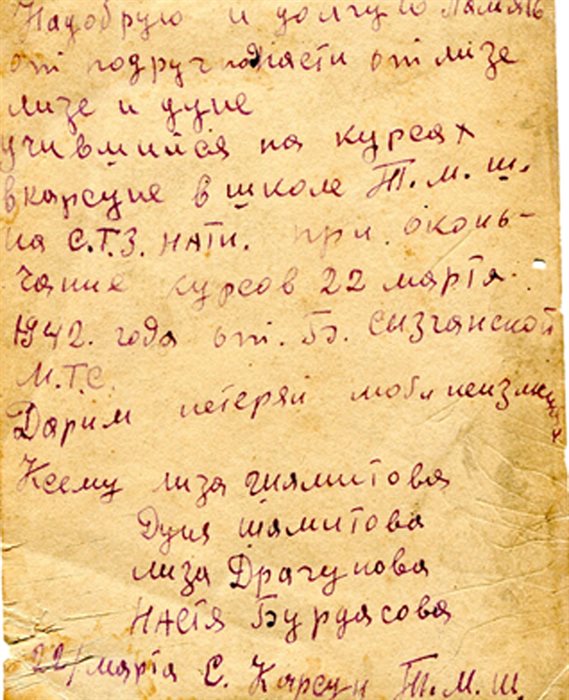 Надобрую и долгую Память
от подруг насти от лизе
лизе и дуне
учившийся на курсах
вкарсуне в школе Т.М.Ш.
на С.Т.З. НАТИ. при оконь-
чание курсов 22 марта
1942. года от. Б. Сизганской
М.Т.С.
Дарим нетеряй
Ксему лиза
Дуня шамитова
лиза Драгунова
НАСТЯ Бурдасова
22/марта С. Карсун Т.М.Ш.